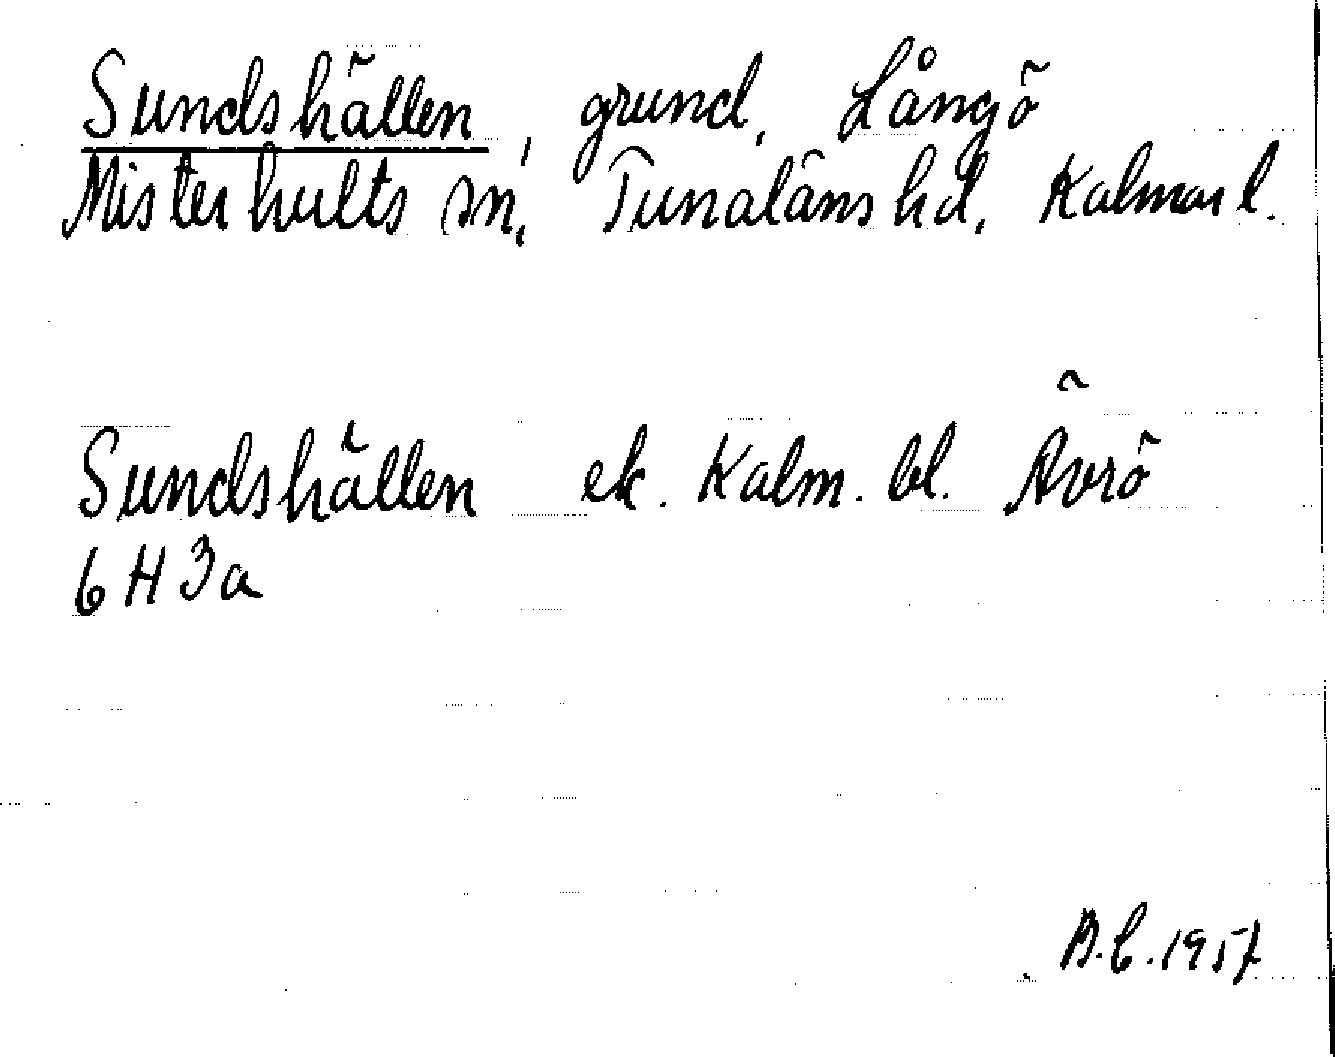 Sundshällen, grund, Långö
Misterhults sn, Tunaläns hd, Kalmar l.
Sundshällen ek. Kalm. bl. Ävrö
6 H 3a
B.C. 1957